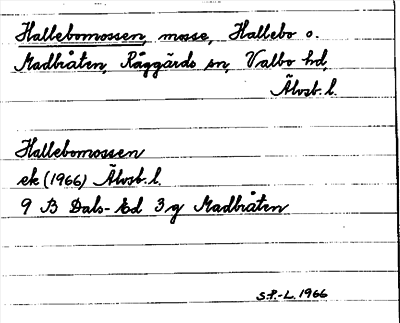 Hallebomossen, mosse, Hallebo o.
Madbråten, Råggärds sn, Valbo hd,
Älvsb. l.
Hallebomossen
ek (1966) Älvsb. l.
9 B Dals-Ed 3 g Madbråten
S.F.-L. 1966